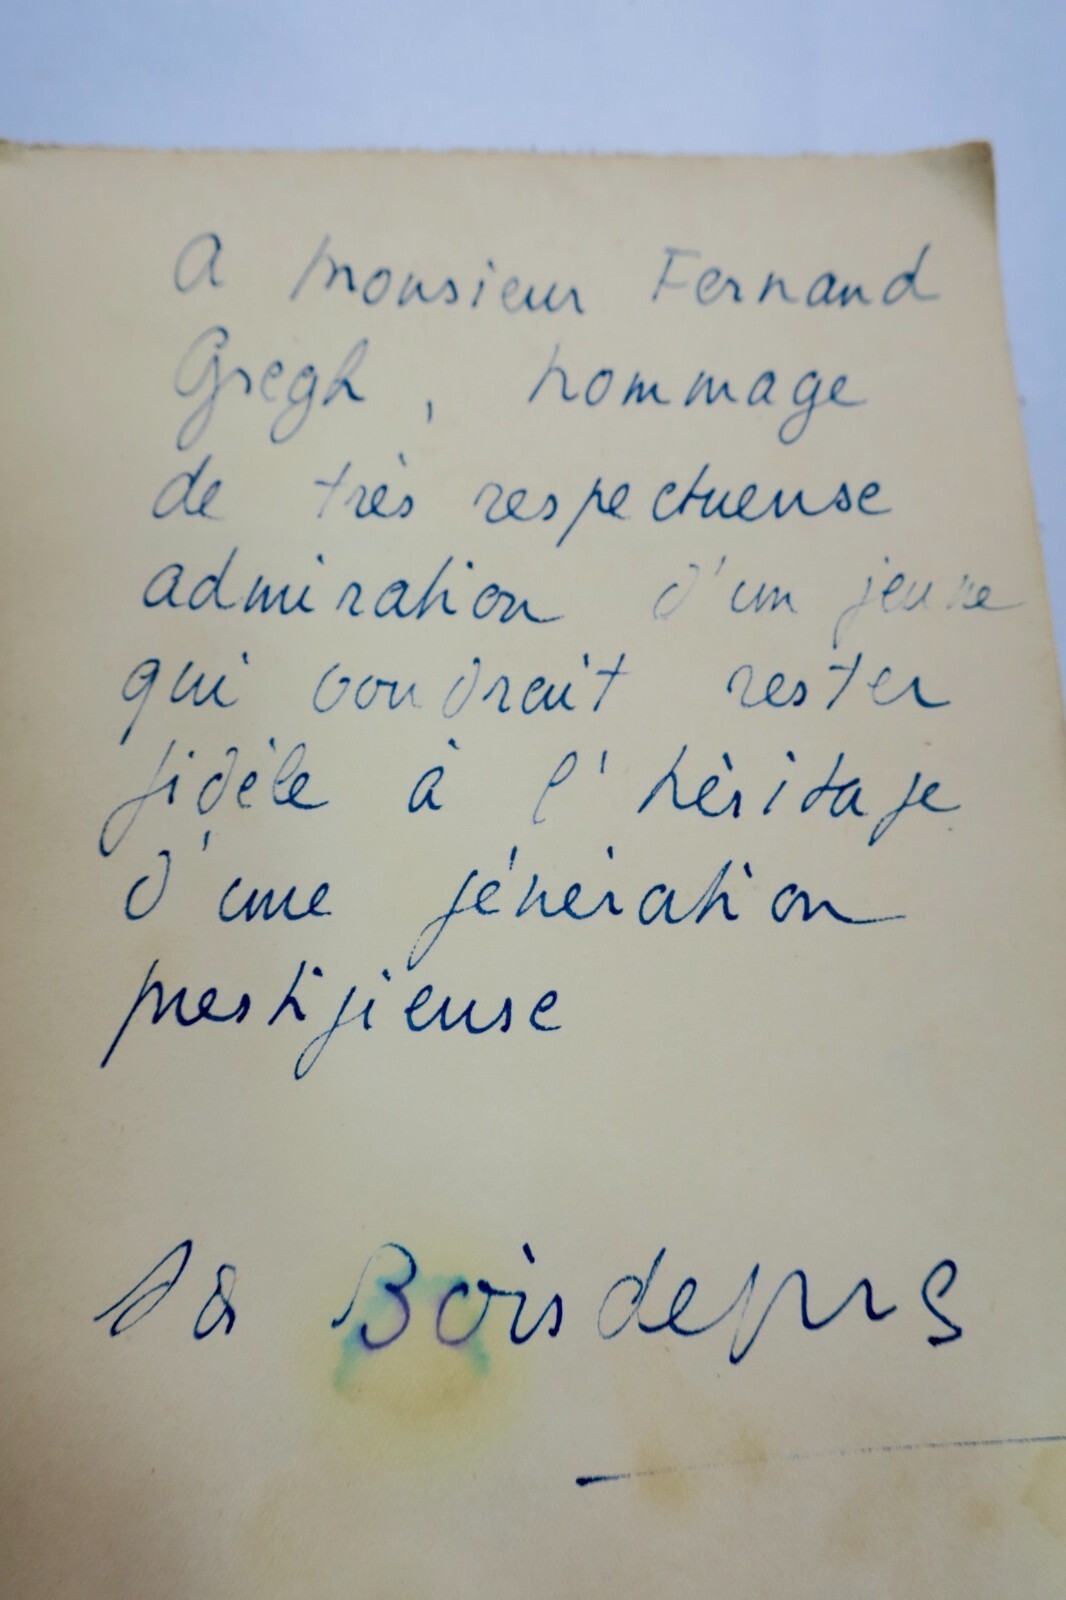 A Monsieur Fernand
Gregh, hommage
de très respectueuse
admiration d'un jeune
qui voudrait rester
fidèle à l'héritage
d'une génération
prestigieuse